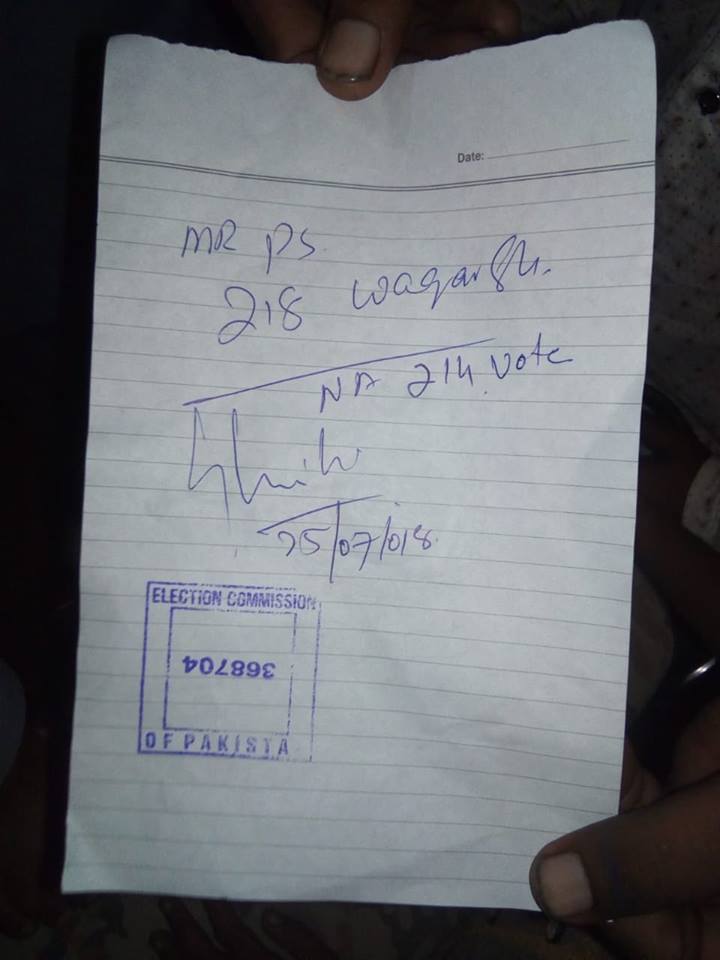 Date:
MR PS.
218 waqar Sh.
NA 214 vote
25/07/018
ELECTION COMMISSION
368704
OF PAKISTA